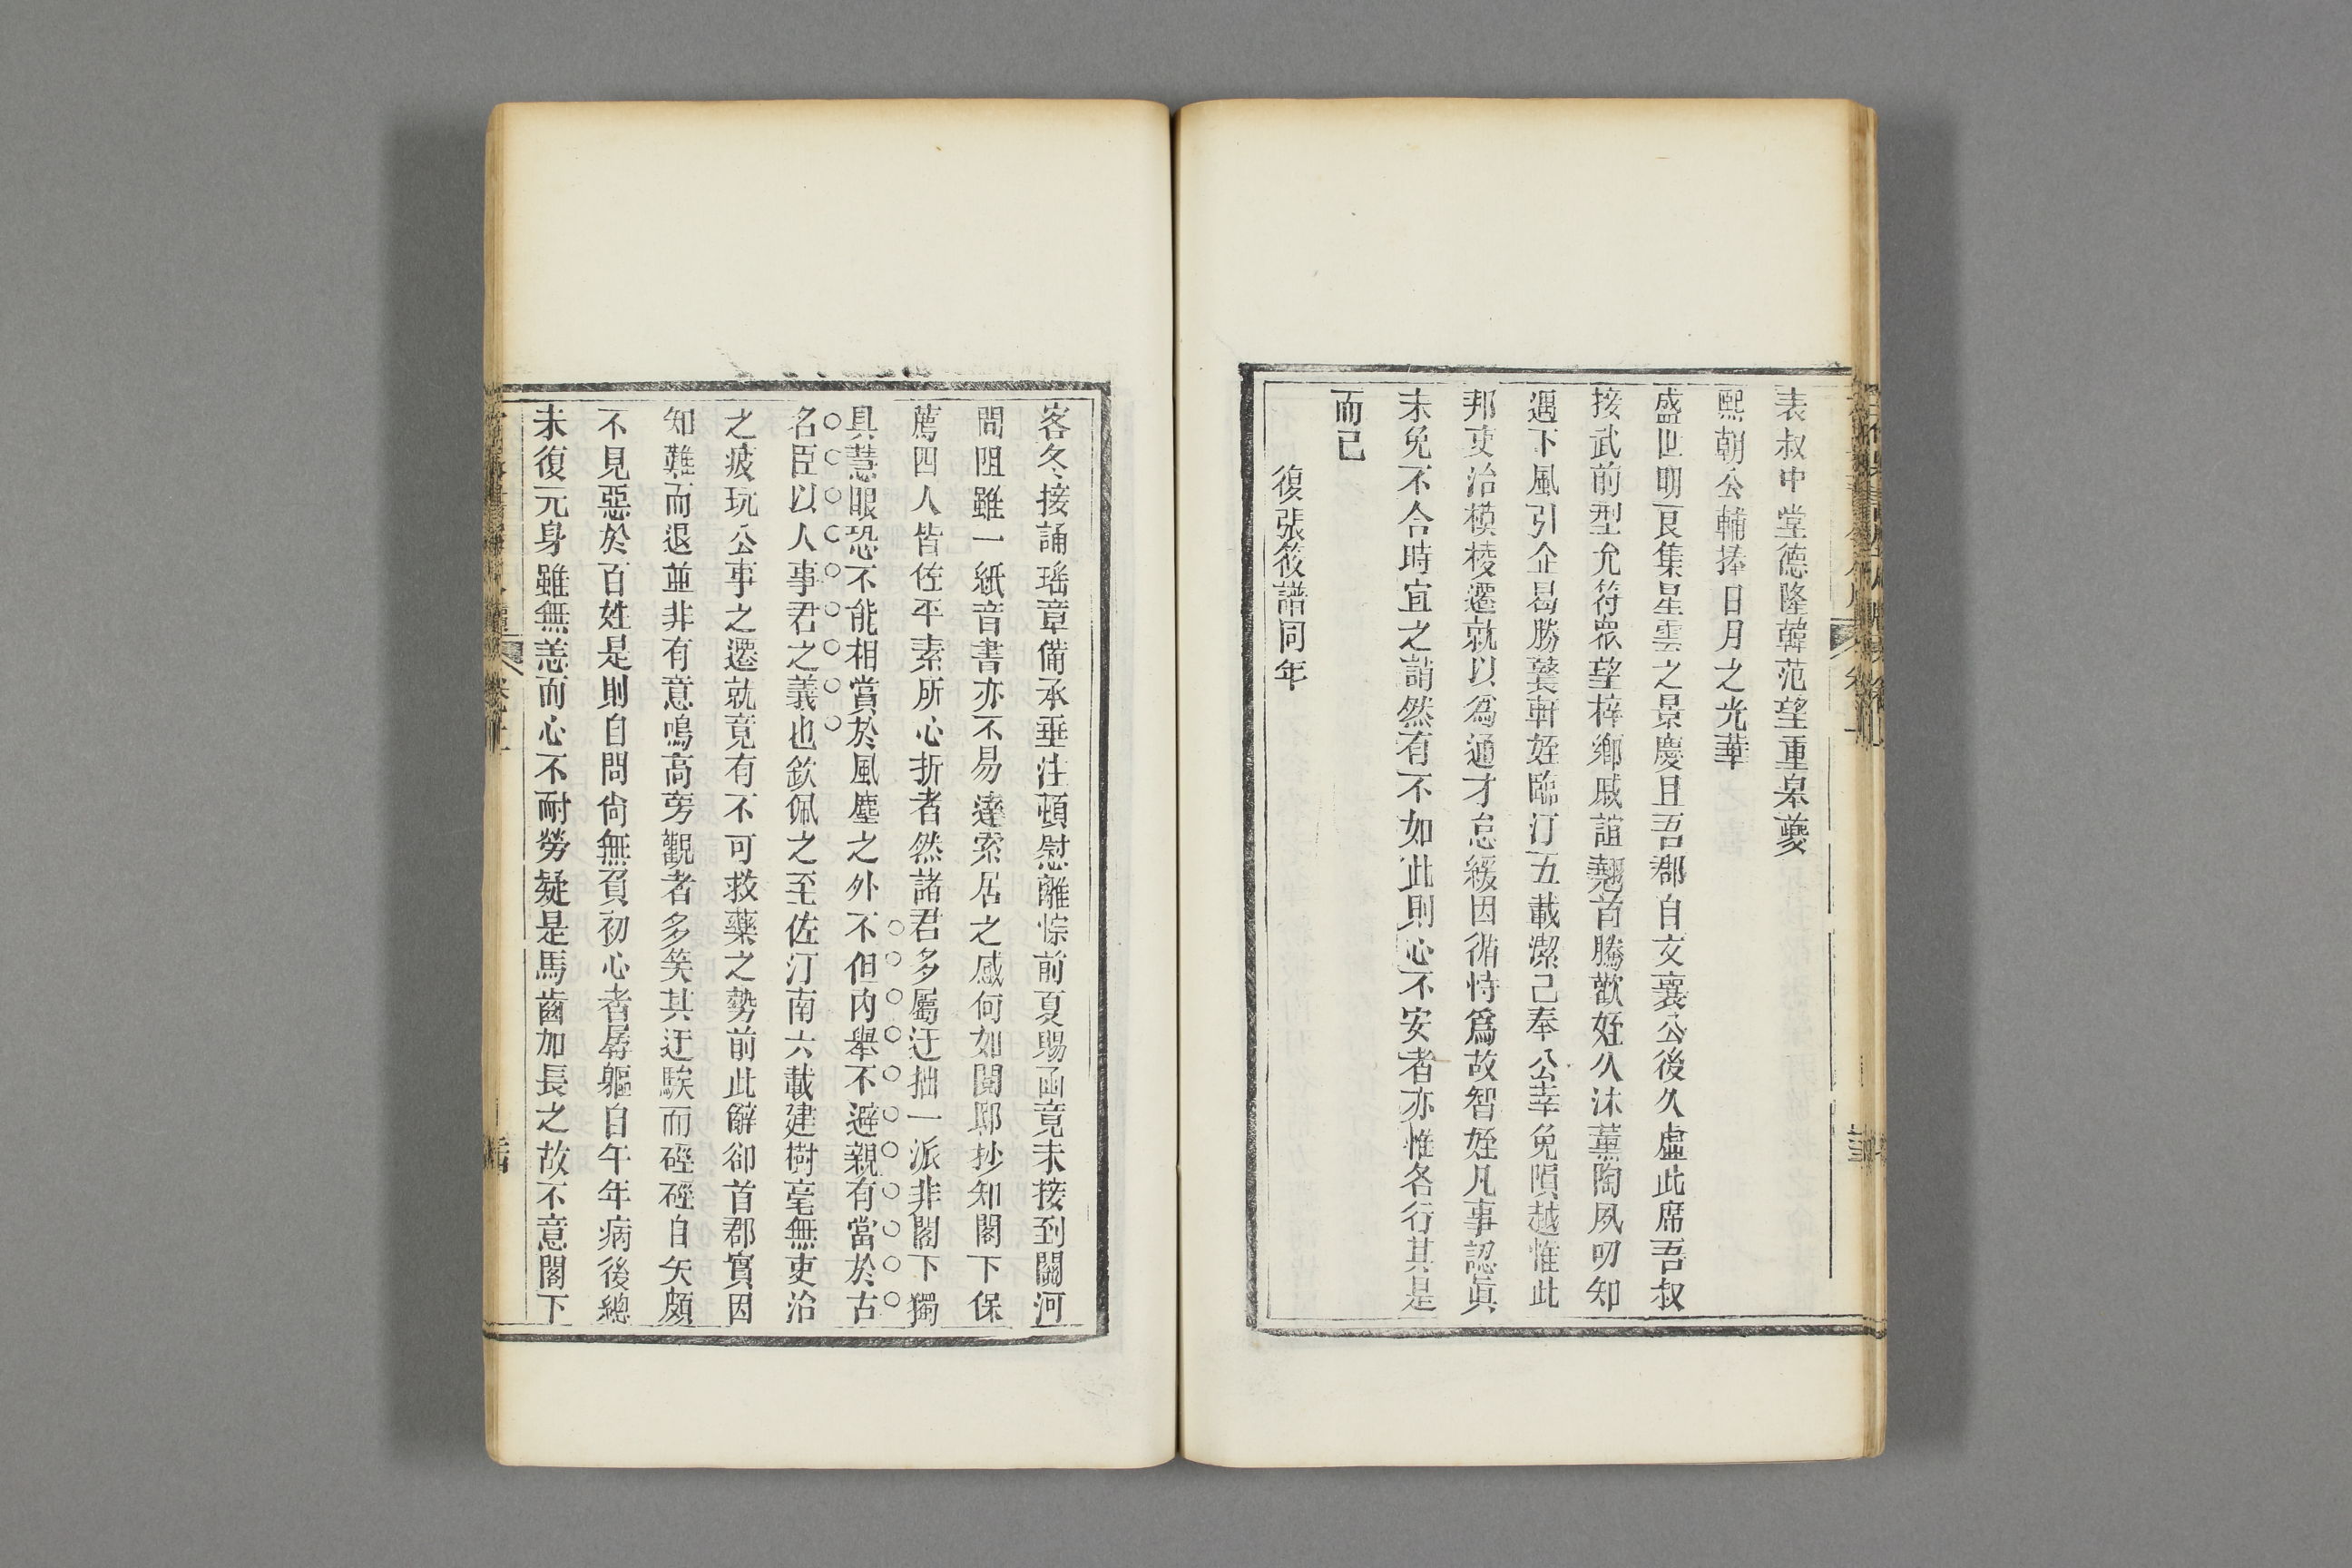 表叔中堂德隆韓范望重皋夔
熙朝公輔捧日月之光華
盛世明良集星雲之景慶且吾郡自文襄公後久虛此席吾叔
接武前型允符眾望梓鄉戚誼翹首騰歡姪久沐薰陶夙叨知
遇下風引企曷勝鼚軒姪臨汀五載潔己奉公幸免隕越惟此
邦吏治模棱遷就以為通才怠緩因循恃爲故智姪凡事認眞
未免不合時宜之誚然有不如此則心不安者亦惟各行其是
而已
復張筱譜同年
客冬接誦瑤章備承垂注頓慰離悰前夏賜函竟未接到關河
間阻雖一紙音書亦不易達索居之感何如閱邸抄知閣下保
薦四人皆佐平素所心折者然諸君多屬迂拙一派非閣下獨
具慧眼恐不能相賞於風塵之外不但內舉不避親有當於古
名臣以人事君之義也欽佩之至佐汀南六載建樹毫無吏治
之疲玩公事之遷就竟有不可救藥之勢前此辭卻首郡實因
知難而退並非有意鳴高旁觀者多笑其迂騃而硜硜自矢頗
不見惡於百姓是則自問尙無負初心者孱軀自午年病後總
未復元身雖無恙而心不耐勞疑是馬齒加長之故不意閣下